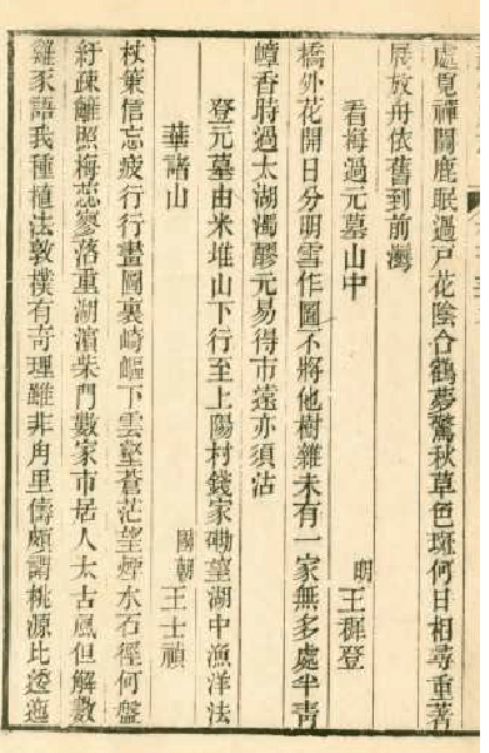 處覓禪關鹿眠過戸花陰合鶴夢驚秋草色斑何日相尋重著
展放舟依舊到前灣
看梅過元墓山中
明王穉登
橋外花開日分明雪作圖不將他樹雜未有一家無多處半靑
嶂香時過太湖濁醪元易得市遠亦須沽
登元墓由米堆山下行至上陽村錢家磡望湖中漁洋法
華諸山
國朝王士禎
杖策信忘疲行行畫圖裏崎嶇下雲壑蒼茫望煙水石徑何盤
紆疎籬照梅蕊寥落重湖濵柴門數家市居人太古風但解數
雞豕語我種植法敦樸有奇理雖非甪里儔頗謂桃源比逶迤